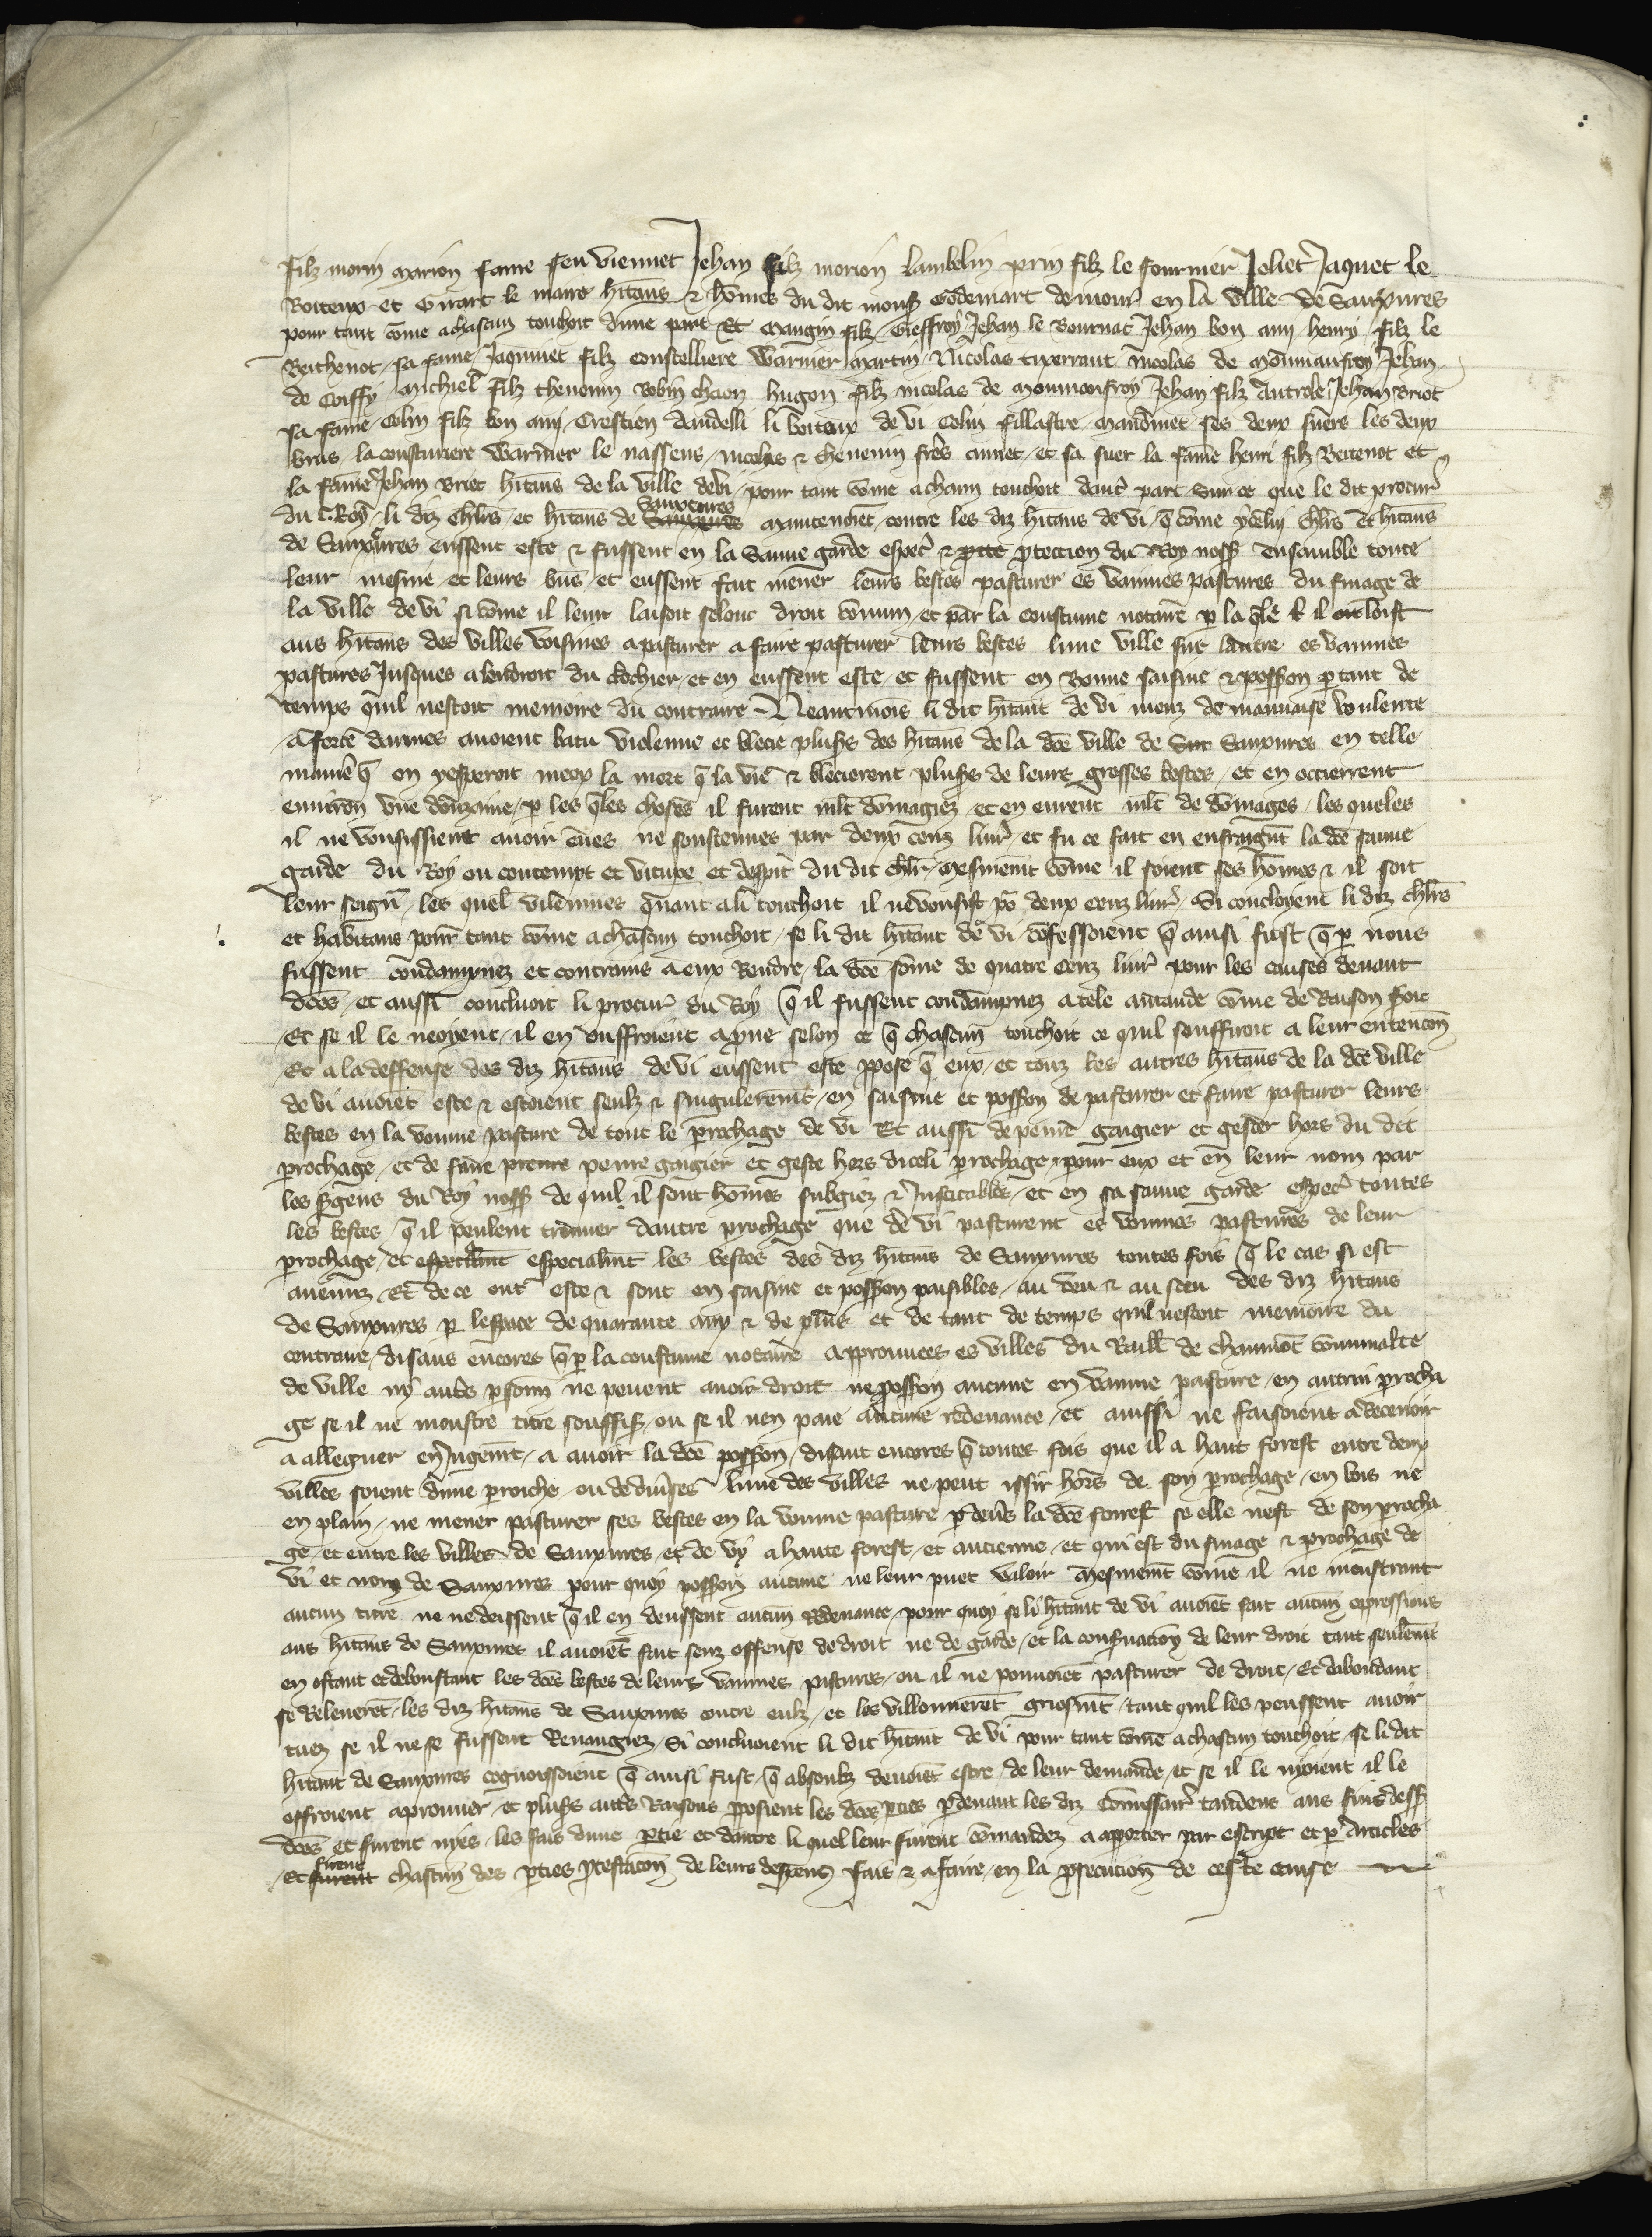 filz morin marion fame feu viennet Jehan filz morion lambelin prin filz le fournier Joliet Jaquet le
Boiteux et Girart le maire hitans & hōmes du dit mons Godemart demour en la ville de Sauxures
pour tant cōme achascun touchoit dune part Et maugin filz Gieffroy Jehan le Bournat Jehan bon ami henry filz le
Berthenot sa fame Jaquinet filz constelliere Warnier martin Nicolas tixerrant nicolas de moūmanfroy Jehan
de Coiffy michiel filz thevenin Robin chaon hugon filz nicolas de moumonfroy Jehan filz Jehan Briot
sa fame Colin filz bon ami Crestien daudelli li boiteux de vi Colin fillastre maudinet ses deux suers les deux
bras la cousturiere Warnier le nassens nicolas & thevenin freres annet et sa suer la fame henri filz Bertenot et
la fame Jehan Briet hitans de la ville de vi pour tant cōme achaun touchoit daut part Sur ce que le dit procur
du Roy li diz chlrs et hitans de Sauxeures maintenoiēt contre les diz hitans de vi q̄ cōme ychlrs et hitans
de Sauxures eussent este & fussent en la Sauve garde espec & ptection du Roy noss ensamble toute
leur mesnie et leurs biēs et eussent fait mener leurs bestes pasturer es vainnes pastures du finage de
la ville de vi si cōme il leur laisoit selonc droit cōmun et par la coustume notaire p la qle il loist
aus hitans des villes voisines a pasturer a faire pasturer leurs bestes lune ville sur lautre es vainnes
pastures Jusques a lendroit du clochier et en eussent este et fussent en Bonne saisine & posson p tant de
temps quil nestoit memoire du contraire Neantmois li dit hitant de vi meuz de mauvaise voulente
a force darmes avoient batu violenne et blecie pluss des hitans de la dce ville de Sauxures en telle
maniē q̄ on y esperoit mieux la mort q̄ la vie & blecierent pluss de leurs grosses bestes et en occierrent
environ une douzaine p les qles choses il furent mlt dōmagiez et en eurent mlt de dōmages les queles
il ne vousissient avoir eues ne soustenues par deux cenz livr et fu ce fait en enfraignt la dce sauve
garde du Roy ou contempt et vitupe et despit du dit chlr mesmemt cōme il soient ses hōmes & il soit
leur seign les quel vilennies quant a li touchoit il ne vousist po deux cenz livr Si concloyent li diz chlrs
et habitans pour tant cōme achascun touchoit se li dit hitant de vi cōfessoient q̄ ainsi fust q̄ p nous
fussent condampnez et contrains a eux Rendre la dce sōme de quatre cenz livr pour les causes devant
dces et aussi concluoit li procur du Roy q̄ il fussent condampnez a tele amande cōme de Raison soit
Et se il le neoyent il en ouffroient apver selon ce q̄ chascun touchoit ce quil souffiroit a leur entencon
Et a la deffense des diz hitans de vi eussent este ppose q̄ eux et touz les autres hitans de la dce ville
de vi avoiet este & estoient seulz & singuleremt en saisine et posson de pasturer et faire pasturer leurs
bestes en la vouine pasture de tout le prochage de vi Et aussi de penre gaigier et gester hors du dit
prochage et de faire penre gaigier et geste hors diceli prochage pour eux et en leur nom par
les sgens du Roy noss de quil il sont hōmes subgiez & Justicables et en sa sauve garde espec toutes
les bestes q̄ il peulent trouver dautre prochage que de vi pasturent es vonnes pastures de leur
prochage et especialmt les bestes des diz hitans de Sauxures toutes fois q̄ le cas si est
avenuz Et de ce ont este & sont en saisine et posson paisibles au veu & au sceu des diz hitans
de Sauxures p lespace de quarante anz & de plus et de tant de temps quil nestoit memoire du
contraire disans encores q̄ p la coustume notaire approuvees es villes du Baill de chaumōt cōmunalte
de ville ny aut psonn ne pevent avoir droit ne posson aucune en vainne pasture en autrui procha
ge se il ne monstre titre souffiss ou se il nen paie aucune redevance et aussi ne faisoient a Recevoir
a alleguer en Jugemt a avoir la dce posson disant encores q̄ toutes fois que il a haut forest entre deux
villes soient dune parroiche ou de divses lune des villes ne peut issir hors de son prochage en bois ne
en plain ne mener pasturer ses bestes en la vouine pasture p devs la dce forest se elle nest de son procha
ge et entre les villes de Sauxures et de vy a haute forest et ancienne et qui est du finage & prochage de
vi et nonz de Sauxures pour quoy posson aucune ne leur puet valoir mesmemt cōme il ne moustrant
aucun titre ne ne deissent q̄ il en deussent aucun Redevance pour quoy se li hitant de vi avoiēt fait aucun oppressions
aus hitans de Sauxures il avoiēt fait senz offense de droit ne de garde et la consvacion de leur droit tant seulemt
en ostant et deboustant les dces bestes de leurs vainnes pastures ou il ne pouvoiēt pasturer de droit Et dabondant
se Relevcrēt les diz hitans de Sauxures contre eulz et les villonnerēt griefmt tant quil les peussent avoir
tuez se il ne se fussent Revangiez Si concluoient li dit hitant de vi pour tant cōme achascun touchoit se li dit
hitant de Sauxures cognoissoient q̄ ainsi fust q̄ absoulz devoiēt estre de leur demande et se il le nyoient il le
offroient aprouver et pluss autrs Raisons pposient les dces pties p devant les diz Cōmissair tandens aus fins dess
dces et furent nyes les fais dune ptie et dautre li quel leur furent cōmandez a apporter par escript et p Articles
Et firent chascun des pties ptestacon de leurs despens fais & afaire en la psecucion de ceste cause